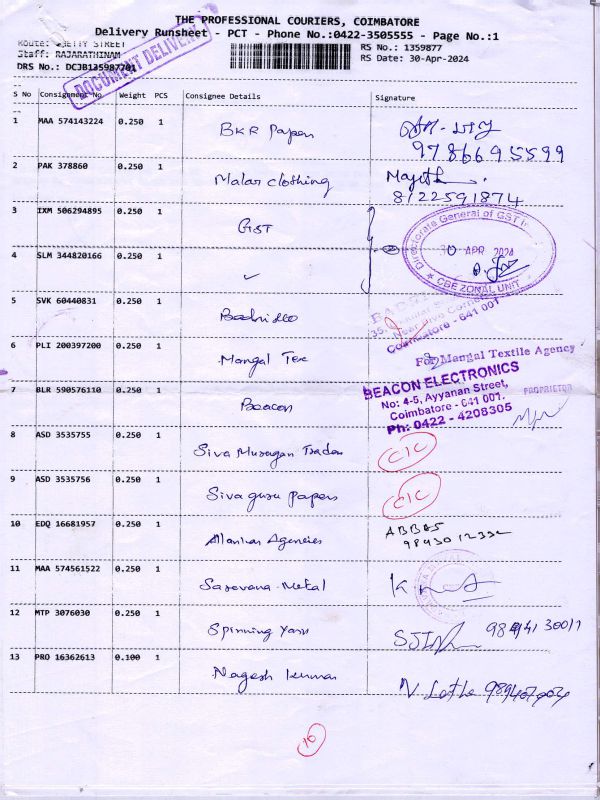 THE PROFESSIONAL COURIERS, COIMBATORE
Delivery Runsheet - PCT - Phone No.:0422-3505555 - Page No.:1
Route: CHETTY STREET
Staff: RAJARATHINAM
DRS No.: DCJB135987701
RS No.: 1359877
RS Date: 30-Apr-2024
DOCUMENT DELIVERY
S No Consignment No Weight PCS Consignee Details Signature
1 MAA 574143224 0.250 1 BKR Papers
9786695599
2 PAK 378860 0.250 1 Malar clothing
8122591874
3 IXM 506294895 0.250 1 GST
Directorate General of GST
30 APR 2024
CBE ZONAL UNIT
4 SLM 344820166 0.250 1 ✓
5 SVK 60440831 0.250 1
Coimbatore - 641 001
6 PLI 200397200 0.250 1 Mangal Tex
For Mangal Textile Agency
PROPRIETOR
7 BLR 590576110 0.250 1 Beacon
BEACON ELECTRONICS
No: 4-5, Ayyanan Street,
Coimbatore - 641 001.
Ph: 0422 - 4208305
8 ASD 3535755 0.250 1 Siva Murugan Traders CIC
9 ASD 3535756 0.250 1 Siva guru papers CIC
10 EDQ 16681957 0.250 1 Agencies
ABBAS
11 MAA 574561522 0.250 1 Saravana Metal
12 MTP 3076030 0.250 1 Spinning Yarn
13 PRO 16362613 0.100 1 Nagesh kumar
N Latha
10